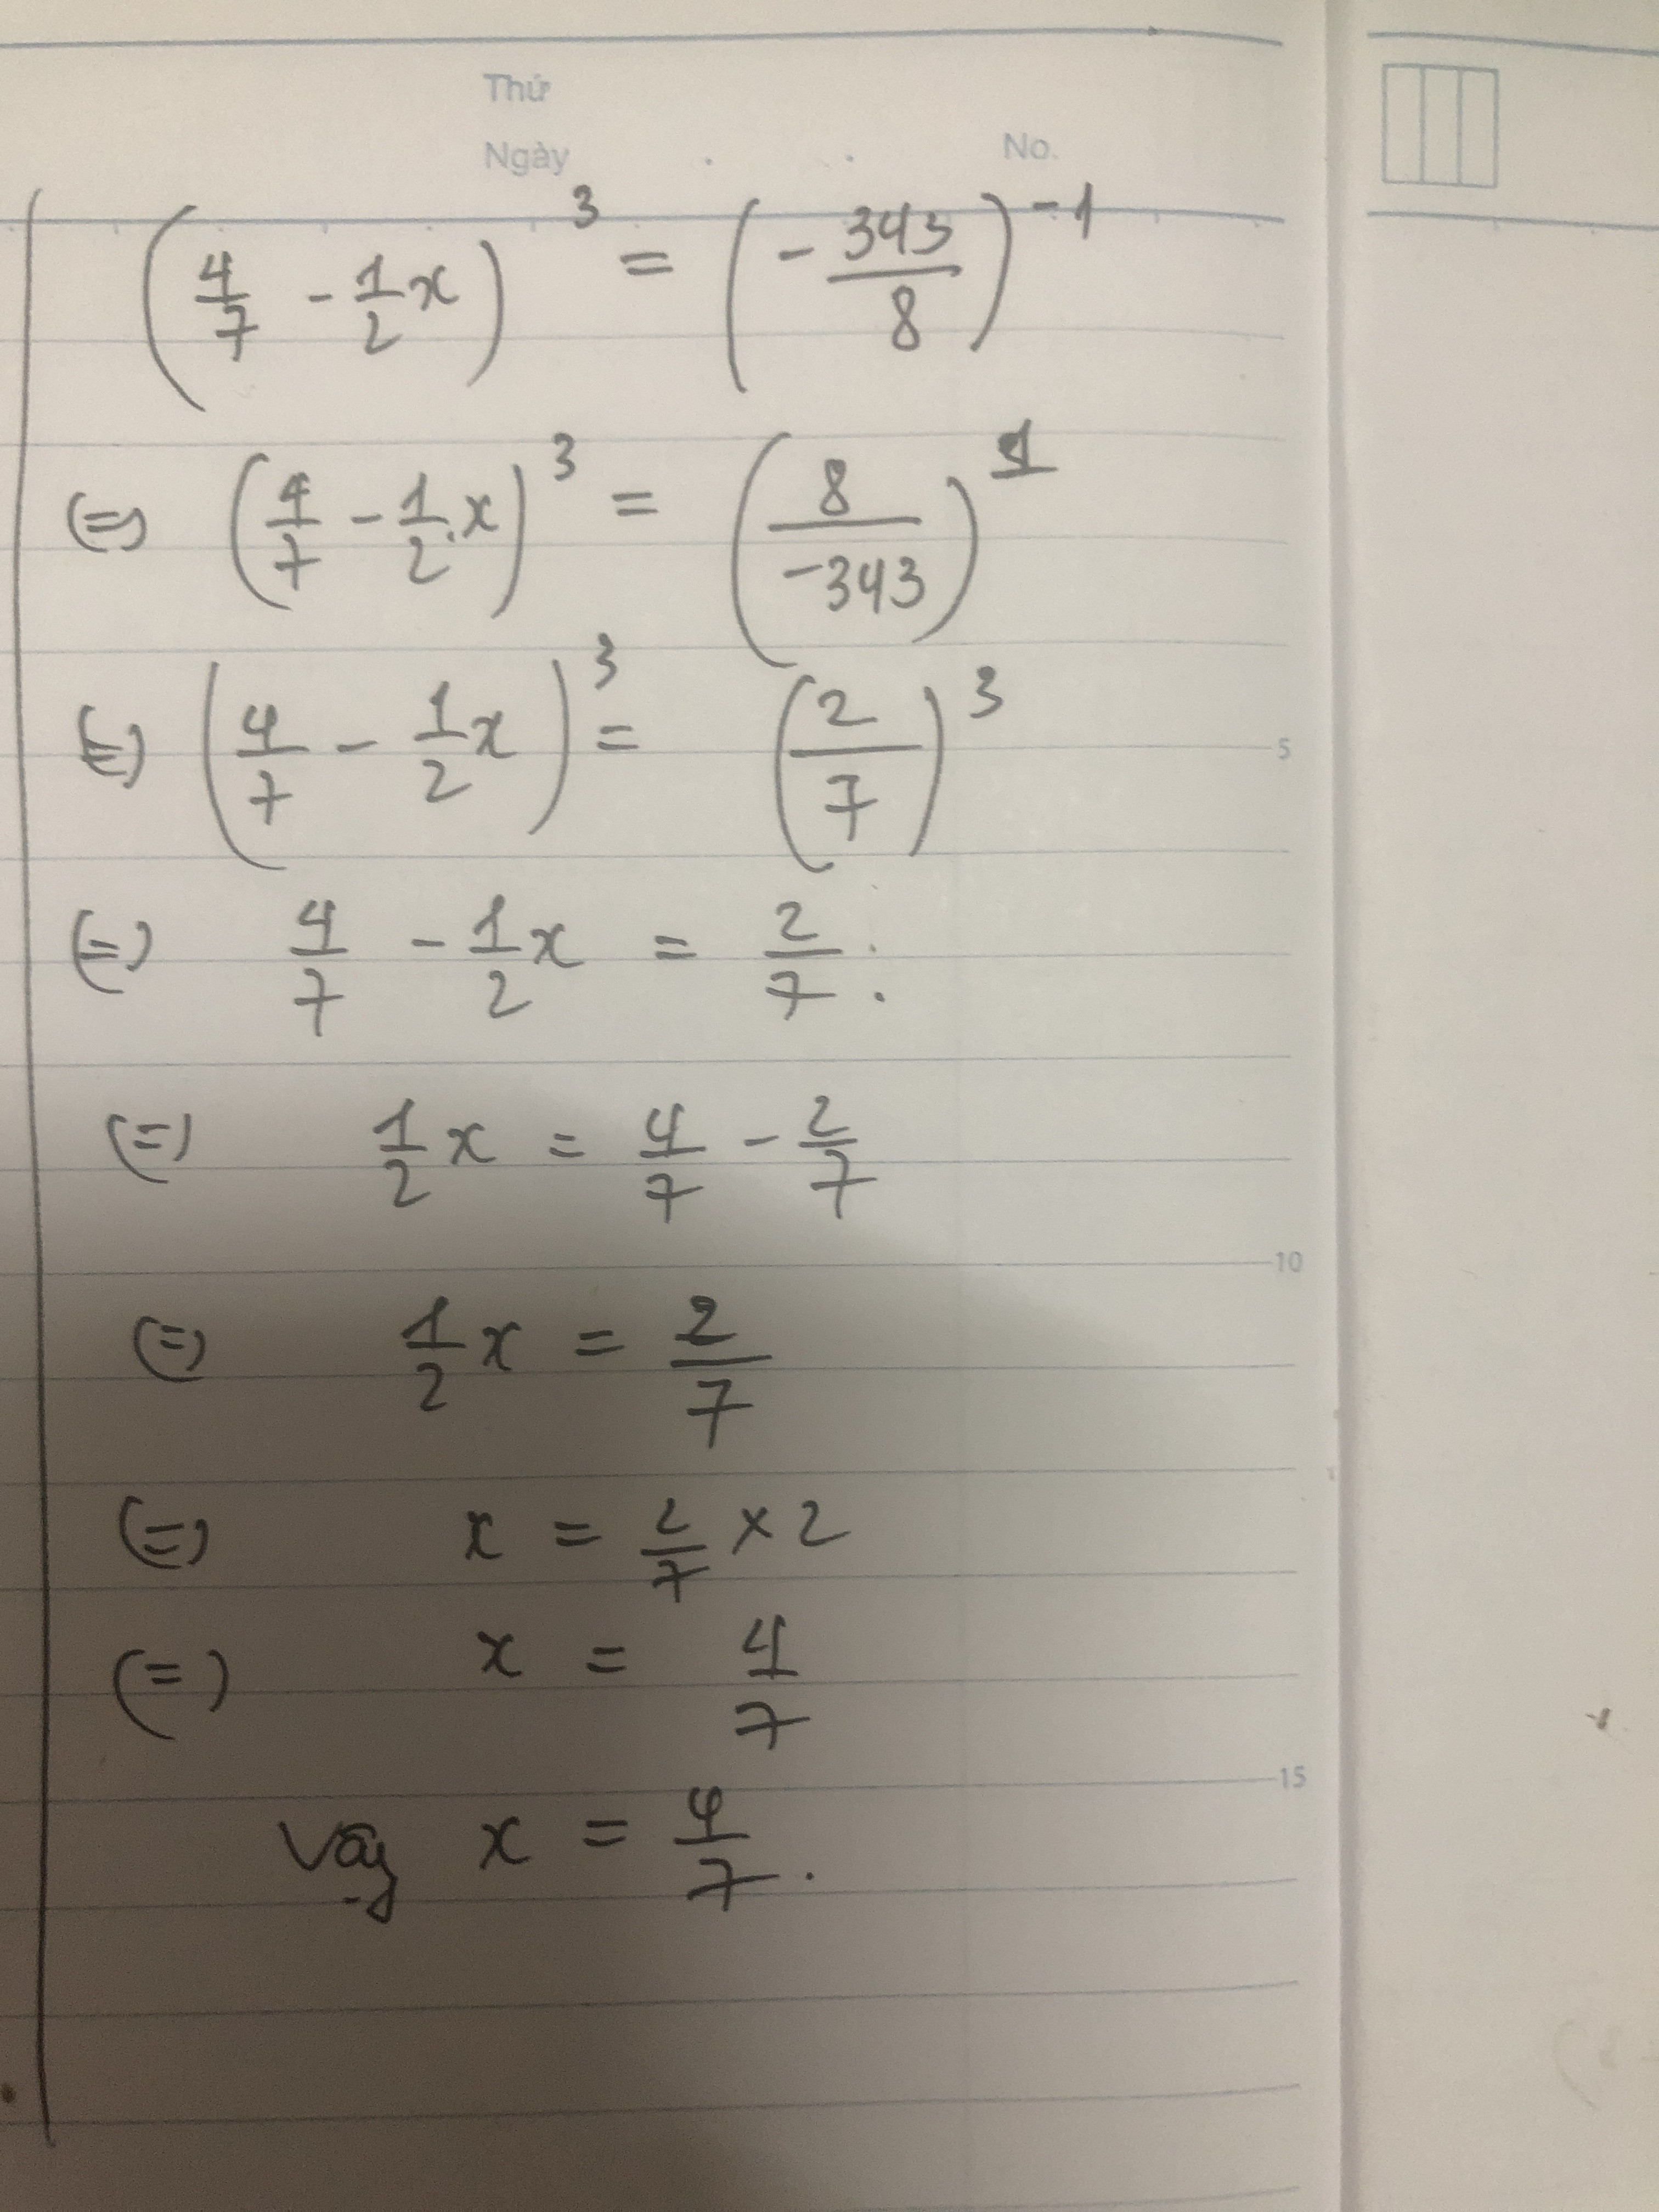 Thứ
Ngày . . No.
(4/7 - 1/2 x)^3 = (- 343/8)^-1
(=) (4/7 - 1/2 . x)^3 = (8/-343)^1
(=) (4/7 - 1/2 x)^3 = (2/7)^3
5
(=) 4/7 - 1/2 x = 2/7 .
(=) 1/2 x = 4/7 - 2/7
10
(=) 1/2 x = 2/7
(=) x = 2/7 × 2
(=) x = 4/7
15
Vậy x = 4/7 .